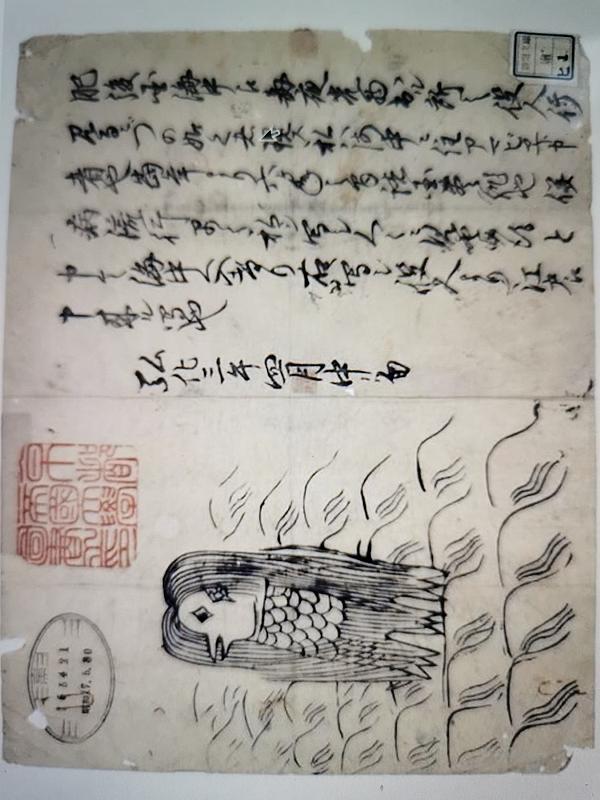 肥後国海中え毎夜光物出ル所之役人行
見るニづの如く者現ス私ハ海中ニ住アマビヱト申
者也当年より六ヶ年之間諸国豊作也併
病流行早々私シ写シ人々ニ見セ候得と
申て海中へ入けり右写シ役人より江戸え
申来ル写也
弘化三年四月中旬